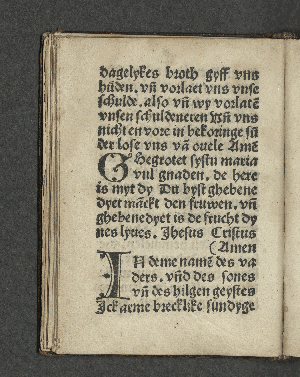 dagelykes broth gyff vns
hüden. vñ vorlaet vns vnse
schulde. also vñ wy vorlatē
vnsen schuldeneren Vñ vns
nicht en vore in bekoringe sū
der lose vns vā ouele Amē
Ghegrotet systu maria
vul gnaden. de here
is myt dy Du byst ghebene
dyet māckt den fruwen. vñ
ghebenedyet is de frucht dy
nes lyues. Jhesus Cristus
(Amen
IN deme namē des va
ders. vñd des sones
vñ des hilgen geystes
Jck arme brecklike sundyge